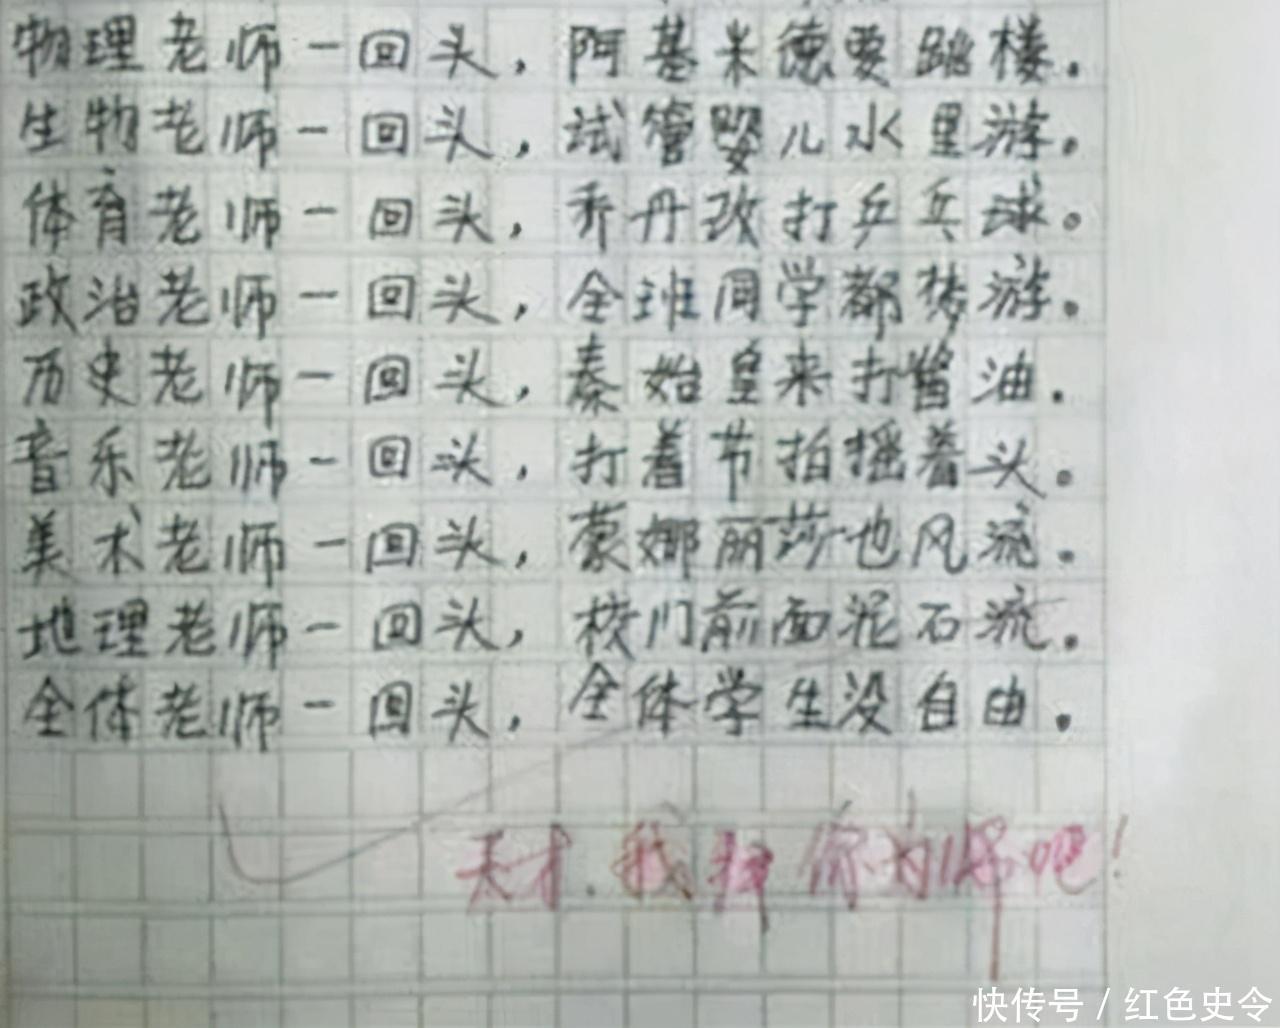 物理老师一回头，阿基米德要跳楼。
生物老师一回头，试管婴儿水里游。
体育老师一回头，乔丹改打乒乓球。
政治老师一回头，全班同学都梦游。
历史老师一回头，秦始皇来打酱油.
音乐老师一回头，打着节拍摇着头。
美术老师一回头，蒙娜丽莎也风流。
地理老师一回头，校门前面泥石流。
全体老师一回头，全体学生没自由。
天才.我拜你为师吧!
快传号/红色史令